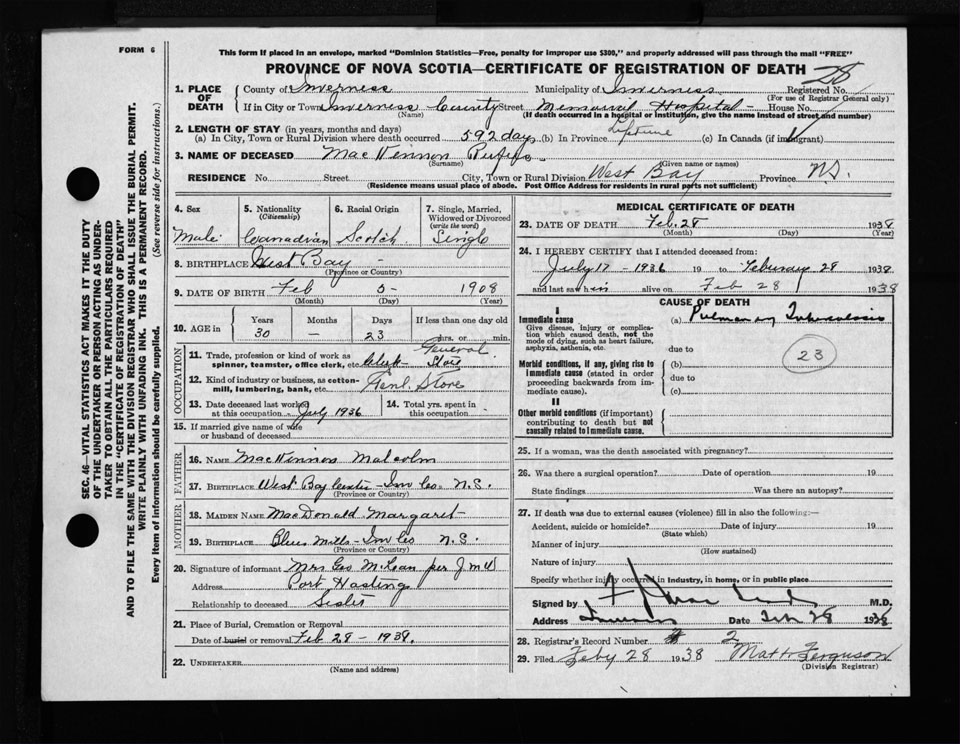 FORM 6
This form if placed in an envelope, marked "Dominion Statistics—Free, penalty for improper use $300," and properly addressed will pass through the mail "FREE"
PROVINCE OF NOVA SCOTIA—CERTIFICATE OF REGISTRATION OF DEATH
28
1. PLACE OF DEATH
County of Inverness Municipality of Inverness Registered No.
(For use of Registrar General only)
If in City or Town Inverness County Street Memorial Hospital - House No.
(Name) (If death occurred in a hospital or institution, give the name instead of street and number)
2. LENGTH OF STAY (in years, months and days)
(a) In City, Town or Rural Division where death occurred 592 days (b) In Province Lifetime (c) In Canada (if immigrant)
3. NAME OF DECEASED MacKinnon Rufus
(Surname) (Given name or names)
RESIDENCE No. Street City, Town or Rural Division West Bay Province N.S.
(Residence means usual place of abode. Post Office Address for residents in rural parts not sufficient)
4. Sex
Male
5. Nationality
(Citizenship)
Canadian
6. Racial Origin
Scotch
7. Single, Married, Widowed or Divorced
(write the word)
Single
8. BIRTHPLACE West Bay -
(Province or Country)
9. DATE OF BIRTH Feb 5- 1908
(Month) (Day) (Year)
10. AGE in
Years Months Days If less than one day old
30 — 23 hrs. or min.
OCCUPATION
11. Trade, profession or kind of work as spinner, teamster, office clerk, etc. Clerk General Store
12. Kind of industry or business, as cotton-mill, lumbering, bank, etc. Genl. Store
13. Date deceased last worked at this occupation July 1936
14. Total yrs. spent in this occupation
15. If married give name of wife or husband of deceased
FATHER
16. NAME MacKinnon Malcolm
17. BIRTHPLACE West Bay Centre - Inv Co. N.S.
(Province or Country)
MOTHER
18. MAIDEN NAME MacDonald Margaret
19. BIRTHPLACE Blues Mills - Inv Co N.S.
(Province or Country)
20. Signature of informant Mrs Geo McLean per
Address Port Hastings
Relationship to deceased Sister
21. Place of Burial, Cremation or Removal
Date of burial or removal Feb 28 - 1938.
22. UNDERTAKER
(Name and address)
MEDICAL CERTIFICATE OF DEATH
23. DATE OF DEATH Feb. 28 1938
(Month) (Day) (Year)
24. I HEREBY CERTIFY that I attended deceased from:
July 17 - 1936 19 to February 28 1938
and last saw him alive on Feb 28 1938
CAUSE OF DEATH
I
Immediate cause
Give disease, injury or complication which caused death, not the mode of dying, such as heart failure, asphyxia, asthenia, etc.
(a) Pulmonary Tuberculosis
due to
23
Morbid conditions, if any, giving rise to immediate cause (stated in order proceeding backwards from immediate cause).
(b)
due to
(c)
II
Other morbid conditions (if important) contributing to death but not causally related to immediate cause.
25. If a woman, was the death associated with pregnancy?
26. Was there a surgical operation? Date of operation 19
State findings Was there an autopsy?
27. If death was due to external causes (violence) fill in also the following:—
Accident, suicide or homicide? Date of injury 19
(State which)
Manner of injury
(How sustained)
Nature of injury
Specify whether injury occurred in industry, in home, or in public place
Signed by M.D.
Address Inverness Date Feb 28 1938
28. Registrar's Record Number 2
29. Filed Feby 28 1938 Matt Ferguson
(Division Registrar)
SEC. 46—VITAL STATISTICS ACT MAKES IT THE DUTY
OF THE UNDERTAKER OR PERSON ACTING AS UNDER-
TAKER TO OBTAIN ALL THE PARTICULARS REQUIRED
IN THE "CERTIFICATE OF REGISTRATION OF DEATH"
AND TO FILE THE SAME WITH THE DIVISION REGISTRAR WHO SHALL ISSUE THE BURIAL PERMIT.
WRITE PLAINLY WITH UNFADING INK. THIS IS A PERMANENT RECORD.
Every item of information should be carefully supplied. (See reverse side for instructions.)